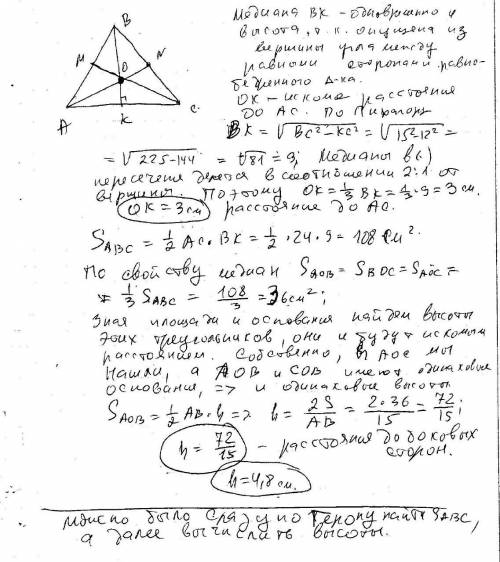 B
M
N
O
A
K
C
Медиана BK – одновременно и
высота, т.к. опущена из
вершины угла между
равными сторонами равно-
бедренного Δ-ка.
OK – искомое расстояние
до AC. По Пифагору
BK = √BC²-KC² = √15²-12² =
= √225-144 = √81 = 9; Медианы в (·)
пересечения делятся в соотношении 2:1 от
вершины. Поэтому OK = 1/3 BK = 1/3 · 9 = 3 см.
OK = 3 см расстояние до AC.
S ABC = 1/2 AC · BK = 1/2 · 24 · 9 = 108 см².
По свойству медиан S AOB = S BOC = S AOC =
= 1/3 S ABC = 108/3 = 36 см²;
Зная площади и основания найдем высоты
этих треугольников, они и будут искомым
расстоянием. Собственно, в AOC мы
нашли, а AOB и COB имеют одинаковые
основания, => и одинаковые высоты
S AOB = 1/2 AB · h => h = 2S/AB = 2·36/15 = 72/15;
h = 72/15 – расстояния до боковых
сторон.
h = 4,8 см.
можно было сразу по Герону найти S ABC,
а далее вычислить высоты.